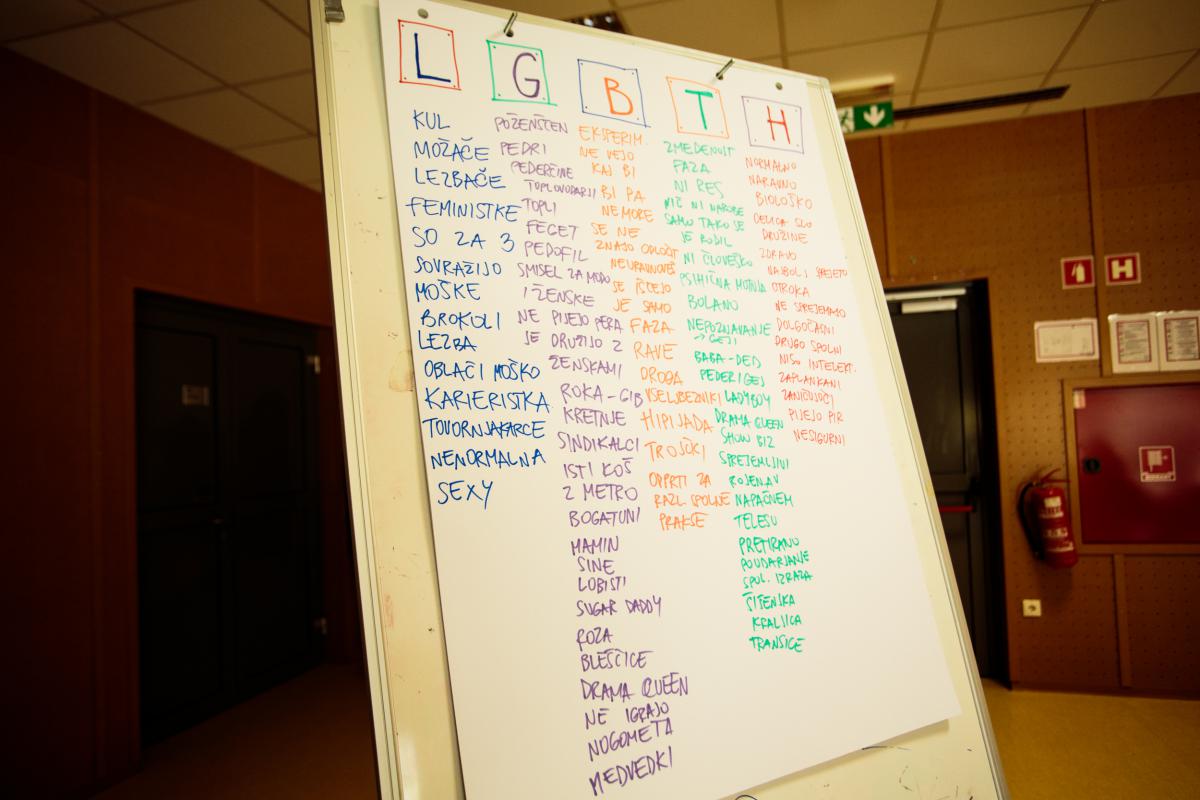 L
KUL
MOŽAČE
LEZBAČE
FEMINISTKE
SO ZA 3
SOVRAŽIJO
MOŠKE
BROKOLI
LEZBA
OBLAČI MOŠKO
KARIERISTKA
TOVORNJAKARCE
NENORMALNA
SEXY
G
POŽENŠČEN
PEDRI
PEDERČINE
TOPLOVODARJI
TOPLI
FEGET
PEDOFIL
SMISEL ZA MODO
I ŽENSKE
NE PIJEJO PIRA
SE DRUŽIJO Z
ŽENSKAMI
ROKA - GIB
KRETNJE
SINDIKALCI
ISTI KOŠ
Z METRO
BOGATUNI
MAMIN
SINE
LOBISTI
SUGAR DADDY
ROZA
BLEŠČICE
DRAMA QUEEN
NE IGRAJO
NOGOMETA
MEDVEDKI
B
EKSPERIM.
NE VEJO
KAJ BI
BI PA
NE MORE
SE NE
ZNAJO ODLOČIT
NEURAVNOVEŠ
SE IŠČEJO
JE SAMO
FAZA
RAVE
DROGA
VSELJUBEZNIKI
HIPIJADA
TROJČKI
ODPRTI ZA
RAZL. SPOLNE
PRAKSE
T
ZMEDENOST
FAZA
NI RES
NIČ NI NAROBE
SAMO TAKO SE
JE RODIL
NI ČLOVEŠKO
PSIHIČNA MOTNJA
BOLANO
NEPOZNAVANJE
→ GEJI
BABA-DED
PEDER/GEJ
LADYBOY
DRAMA QUEEN
SHOW BIZ
SPREJEMLJIVI
ROJEN V
NAPAČNEM
TELESU
PRETIRANO
POUDARJANJE
SPOL. IZRAZA
ŠITENSKA
KRALJICA
TRANSICE
H
NORMALNO
NARAVNO
BIOLOŠKO
DRUŽINE
ZDRAVO
NAJBOLJ SPREJETO
OTROKA
NE SPREJEMAMO
DOLGOČASNI
DRUGO SPOLNI
NISO INTELEKT.
ZAPLANKANI
ZANIČUJOČI
PIJEJO PIR
NESIGURNI
H